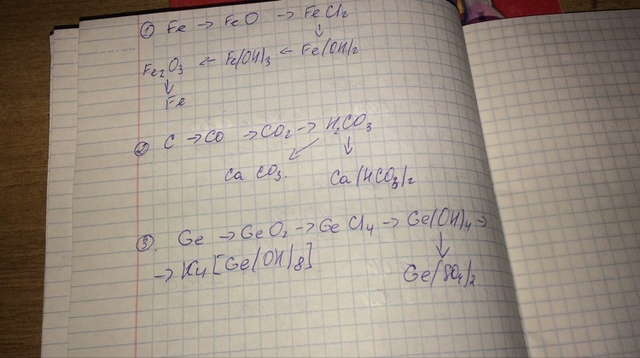 ① Fe → FeO → FeCl₂
↓
Fe₂O₃ ← Fe(OH)₃ ← Fe(OH)₂
↓
Fe
② C → CO → CO₂ → H₂CO₃
↙ ↓
CaCO₃. Ca(HCO₃)₂
③. Ge → GeO₂ → GeCl₄ → Ge(OH)₄ →
↓
→ K₄[Ge(OH)₈]
Ge(SO₄)₂